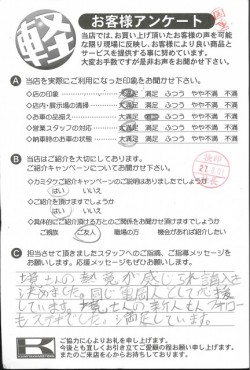 軽
お客様アンケート
当店では、お買い上げ頂いたお客様の声を可能
な限り現場に反映し、お客様により良い商品と
サービスを提供する事に努めています。
大変お手数ですが是非お声をお聞かせ下さい。
A 当店を実際にご利用になった印象をお聞かせ下さい。
◇店の印象 大満足 満足 ふつう やや不満 不満
◇店内・展示場の清掃 大満足 満足 ふつう やや不満 不満
◇お車の品揃え 大満足 満足 ふつう やや不満 不満
◇営業スタッフの対応 大満足 満足 ふつう やや不満 不満
◇納車時のお車の状態 大満足 満足 ふつう やや不満 不満
B 当店はご紹介を大切にしております。
ご紹介キャンペーンについてお聞かせ下さい。
◇カミタケご紹介キャンペーンのご説明はありましたでしょうか
はい いいえ
◇ご紹介を頂けますでしょうか
はい いいえ
◇具体的にご紹介頂ける方とのご関係をお聞かせ頂けますでしょうか
ご親族 ご友人 職場の方 機会があれば紹介したい
C 担当させて頂きましたスタッフへのご指摘、ご指導メッセージを
お願いします。応援メッセージもぜひお願いします。
さんの熱意が感じられ購入を
決めました。
しています。
満足しています。
K
ご協力に心よりお礼を申し上げます。
今後とも宜しくお引き立てご愛顧の程お願い申し上げます。
またのご来店を心からお待ちしております。